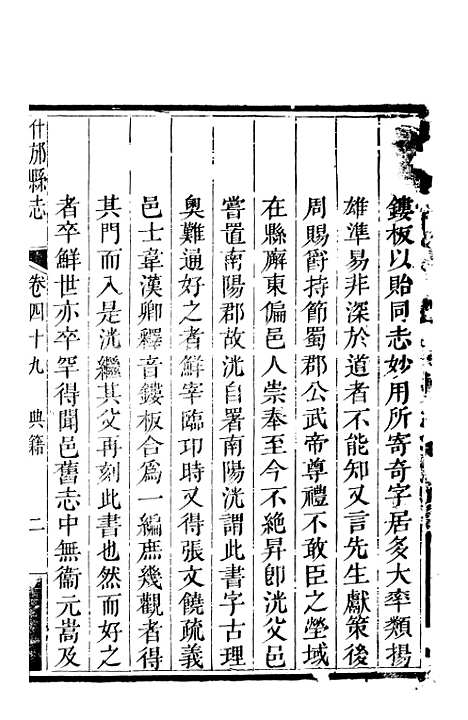 鏤板以貽同志妙用所寄奇字居多大率類揚
雄準易非深於道者不能知又言先生獻策後
周賜爵持節蜀郡公武帝尊禮不敢臣之塋域
在縣廨東偏邑人崇奉至今不絶昇卽洸父邑
嘗置南陽郡故洸自署南陽洸謂此書字古理
奧難通好之者鮮宰臨卭時又得張文饒疏義
邑士韋漢卿釋音鏤板合爲一編庶幾觀者得
其門而入是洸繼其父再刻此書也然而好之
者卒鮮世亦卒罕得聞邑舊志中無衞元嵩及
什邡縣志 卷四十九 典籍 二